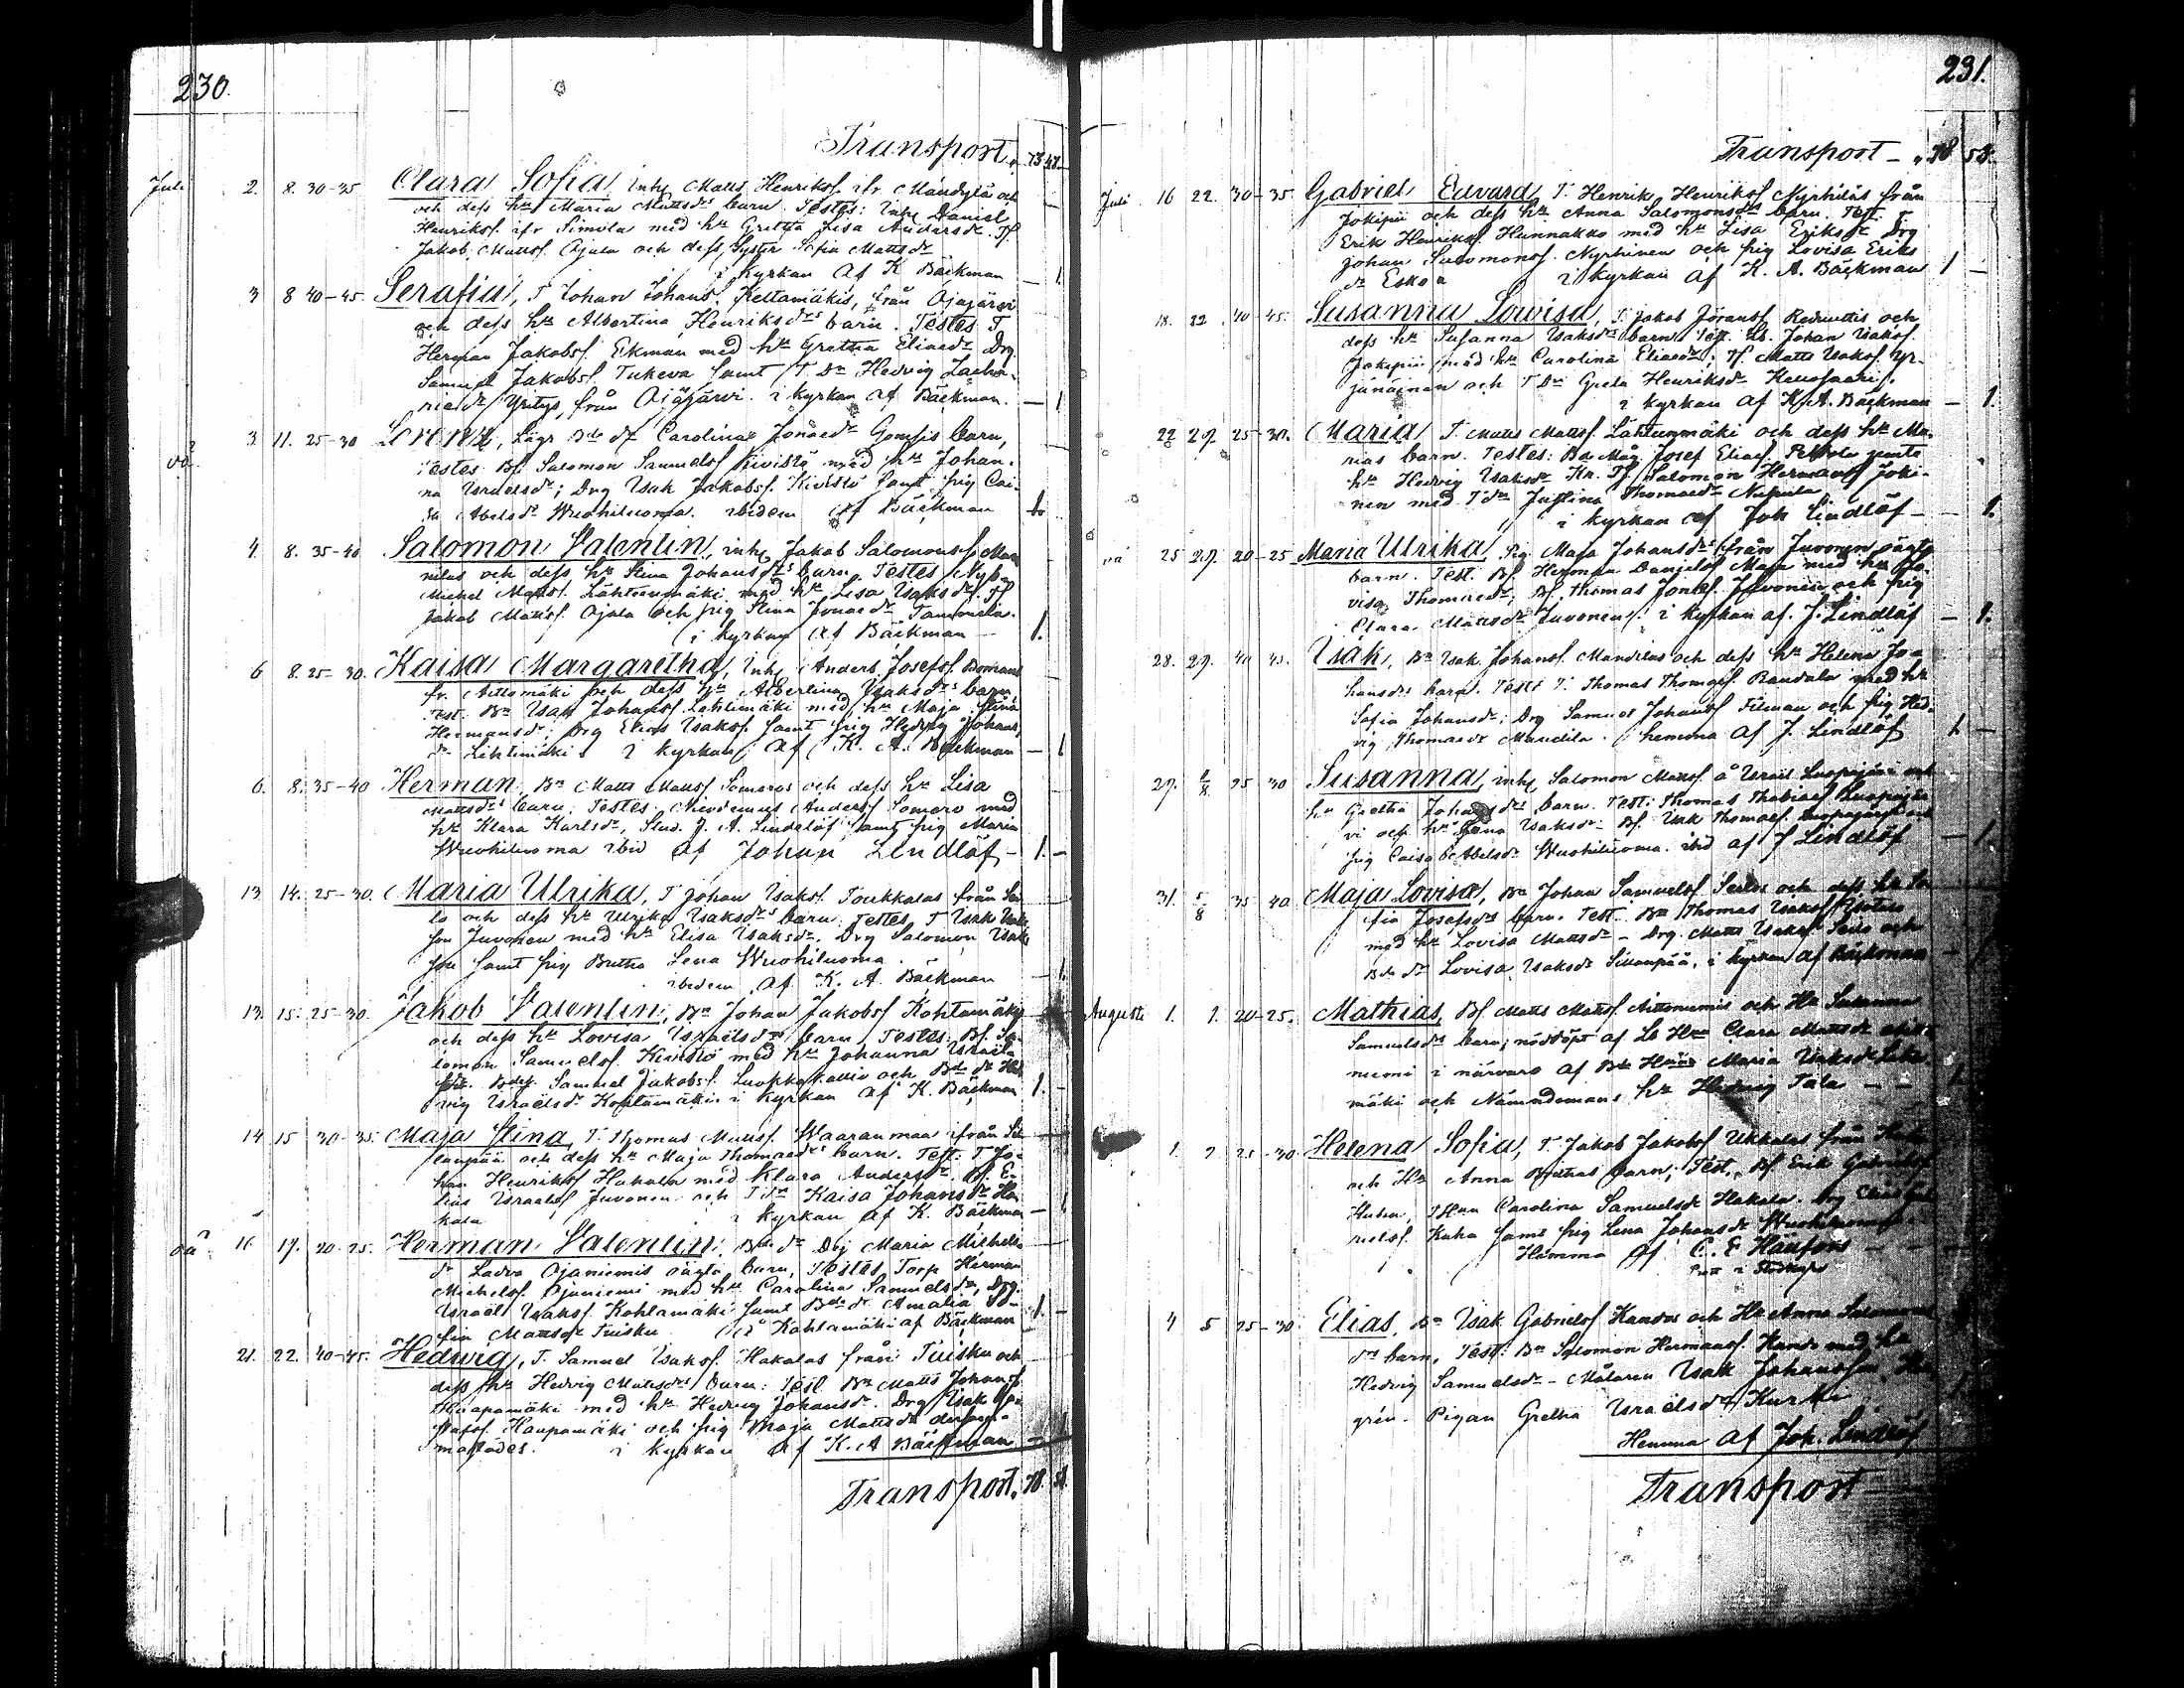 230.
Transport „ 73 47.
Juli 2. 8. 30-35 Clara Sofia, inh. Matts Henrikss. ifr. Mandylä och
och dess h:u Maria Mattsd:s barn. Testes: Inh. Daniel
Henrikss. ifr Simola med h:u Gretha Lisa Andersd:r. Tf.
Jakob Mattss. Ojala och dess syster Sofia Mattsd:r
i kyrkan af K Bäckman — 1.
3 8 40-45. Serafia, T Johan Johans. Keltamäkis, från Ojajärvi
och dess h:u Albertina Henriksd:rs barn. Testes T
Herman Jakobss. Ekman med h:u Gretha Eliaed:r Drg.
Samuel Jakobss. Tukeva samt T. D:r Hedvig Zacha-
ried:r Yritys, från Ojäjärvi. i kyrkan af Bäckman. — 1
oä. 3 11. 25-30 Carolinae Jonaed:r barn,
Testes: Bf. Salomon Samuelss Kivistö med h:u Johan-
na Israelsd:r; Drg Isak Jakobss. Kivistö samt pig Cai-
sa Abelsd:r Wuohiluoma. ibidem af Bäckman 1.
4. 8. 35-40 Salomon Valentin, inh. Jakob Salomonss Man-
nilas och dess h:u Stina Johansd:rs barn. Testes Nyb.
Michel Mattss. Lähteenmäki med h:u Lisa Isaksd:r. Tf
Jakob Mattss. Ojala och pig Stina Jonaed:r Tammela.
i kyrkan af Bäckman — 1.
6 8. 25-30. Kaisa Margaretha, Inh. Anders Josefss.
fr. Aittomäki och dess h:u Albertina Isaksd:rs barn
Test. B:n Isak Johanss Lehtimäki med h:u Maja Stina
Hermansd:r; Drg Elias Isakss. samt pig Hedvig Johans
d:r Lehtimäki i kyrkan af K. A. Bäckman — 1
6. 8. 35-40 Herman, B:n Matts Mattss Someros och dess h:u Lisa
Mattsd:rs barn; Testes. Nicodemus Anderss Somero med
h:u Klara Karlsd:r, Stud. J. A. Lindelöf samt pig Maria
Wuohiluoma ibid af Johan Lindlöf — 1. —
13. 14. 25-30. Maria Ulrika, T Johan Isakss. Toukkalas från Sei-
lo och dess h:u Ulrika Isaksd:rs barn. Testes T Isak Isaks
son Juvonen med h:u Elisa Isaksd:r. Drg Salomon Isaks
son samt pig Brita Lena Wuohiluoma.
ibidem af K. A. Bäckman — 1.
13. 15. 25-30. Jakob Valentin, B:n Johan Jakobss Kohtamäkis
och dess h:u Lovisa Israelsd:rs barn, Testes: Bf. Sa-
lomon Samuelss. Kivistö med h:u Johanna Israels
d:r. Samuel Jakobss. och B:de d:r Hed
vig Israelsd:r Kohtamäki i kyrkan af K. Bäckman 1. —
14 15 30-35. Maja Stina, T. Thomas Mattss. Waaranmaa ifrån Sil-
lanpää och dess h:u Maja Thomaed:rs barn. Test: T Jo-
han Henrikss Hakala med Klara Andersd:r. Bf. E-
lias Israelss Juvonen och T d:r Kaisa Johansd:r Ha-
kala i kyrkan af K. Bäckman — 1
oä. 16 17. 20-25. Herman Valentin, B:de d:r Maria Michels
d:r Ladva Ojaniemis oägta barn, Testes Torp Herman
Michelss. Ojaniemi med h:u Carolina Samuelsd:r, Drg.
Israel Isakss. Kohtamäki samt B:de d:r Amalia So-
fia Mattsd:r Tuisku. Kohtamäki af Bäckman 1. —
21. 22. 40-45. Hedwig, T. Samuel Isakss. Hakalas från Tuisku och
dess h:u Hedvig Mattsd:rs barn: Test B:n Matts Johanss
Haapamäki med h:u Hedvig Johansd:r. Drg Isak
Haapamäki och pig Maja Mattsd:r
i kyrkan af K. A Bäckman — 1
Transport. 78.
231.
Transport — „ 78 53.
Juli. 16 22. 30-35. Gabriel Edvard, T. Henrik Henrikss Nyrhiläs från
Jokipii och dess h:u Anna Salomonsd:rs barn. Test. T.
Erik Henrikss. Hunnakko med h:u Lisa Eriksd:r Drg
Johan Salomonss. Nyrhinen och pig Lovisa Eriks
d:r Eskola i kyrkan af K. A. Bäckman 1 —
18. 22. 40-45. Susanna Lowisa, T. Jakob Joranss. och
dess h:u Susanna Isaksd:rs barn. Test. Johan Isakss.
Jokipii med h:u Carolina Eliaed:r; Tf. Matts Isakss. Yr-
jänäinen och T D:r Greta Henriksd:r
i kyrkan af K. A. Bäckman — 1.
22 29. 25-30. Maria T. Matts Mattss. Lähteenmäki och dess h:u Ma-
rias barn. Testes: Josef Eliaes.
h:u Hedvig Isaksd:r Tf. Salomon Hermanss Joki-
nen med T d:r Justina Thomaed:r
i kyrkan af Joh Lindlöf — 1.
oä 25 29. 20-25 Maria Ulrika, Pig. Maja Johansd:rs från Juvonen oägta
barn. Test: Bf. Herman Danielss Maja med h:u Lo-
visa Thomaed:r, Bf. Thomas Jonaes. Juvonen och pig
Clara Mattsd:r Juvonen. i kyrkan af. J. Lindlöf — 1.
28. 29. 40 45. Isak, B:n Isak Johanss. Mandilas och dess h:u Helena Jo-
hansd:rs barn. Testes T. Thomas Thomaes. Randala med h:u
Sofia Johansd:r; Drg Samuel Johanss Filman och pig Hed-
vig Thomaed:r Mandila. hemma af J. Lindlöf 1. —
29. 1/8 25 30 Susanna, inh. Salomon Mattss. å Israel Luopajärvi och
h:u Gretha Johansd:rs barn. Test: Thomas Luopajär-
vi och h:u Isaksd:r — Bf. Isak Thomaes. Luopajärvi och
pig Caisa Abelsd:r Wuohiluoma. ibid af J Lindlöf — 1.
31. 5/8 35 40. Maja Lovisa, B:n Johan Samuelss Seilos och dess h:u So-
fia Josefsd:rs barn. Test. B:n Thomas Isakss
med h:u Lovisa Mattsd:r — Drg. Matts Isakss Seilo och
B:de d:r Lovisa Isaksd:r Sillanpää, i kyrkan af Bäckman —
Augusti 1. 1. 20-25. Mathias, Bf Matts Mattss. Aittoniemis och H:u Susanna
Samuelsd:rs barn; nöddöpt af Lb H:u Clara Mattsd:r Aitto
niemi i närvaro af B:de H:u Maria Isaksd:r
mäki och Nämndemans h:u Hedwig Tala — — 1.
1. 2 25-30 Helena Sofia, T. Jakob Jakobss Ukkolas från
och H:u Anna barn; Test. Bf Erik Gabrielss
Carolina Samuelsd:r Hakala. Drg Elias
rielss. Kuha samt pig Lena Johansd:r Wuohiluoma.
Hemma af C. E Hänfors — —
4 5 25-30 Elias, B:n Isak Gabrielss Kandos och H:u Anna Salomons
d:rs barn. Test: B:n Salomon Hermanss. Hando med h:u
Hedvig Samuelsd:r — Målaren Isak Johansson
grén. Pigan Gretha Israelsd:r Kurki.
Hemma af Joh. Lindlöf
Transport